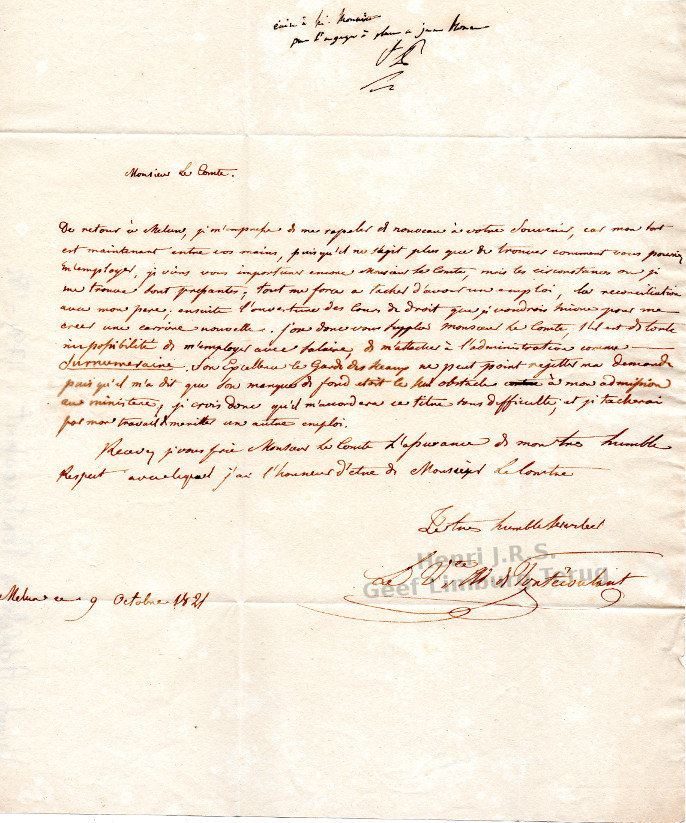 écrire à
pour l'engager à placer ce jeune homme
Monsieur Le Comte.
De retour à Melun, je m'empresse de me rapeler de nouveau à votre Souvenir, car mon sort
est maintenant entre vos mains, puisqu'il ne s'agit plus que de trouver comment vous pouriez
m'employer, je viens vous importuner encore Monsieur Le Comte, mais les circonstances ou je
me trouve sont pressantes; tout me force a tacher d'avoir un emploi, la reconciliation
avec mon pere, ensuite l'ouverture des Cours de droit que je voudrois suivre pour me
creer une carriere nouvelle. j'ose donc vous supplier monsieur Le Comte, s'il est de toute
impossibilité de m'employer avec salaire de m'attacher à l'administration comme
Surnumeraire. Son Excellence le Garde des Sceaux ne peut point rejetter ma demande
puisqu'il m'a dit que son manque de fond etoit le seul obstacle à mon admission
au ministere, je crois donc qu'il m'accordera ce titre sans difficulté, et je tacherai
par mon travail de meriter un autre emploi.
Recevez je vous prie Monsieur Le Comte L'assurance de mon tres humble
Respect avec lequel j'ai l'honneur d'etre de Monsieur Le Comte
Le tres humble Serviteur
Henri J.R.S.
Le Vte de Pontécoulant
Geef Limburg Terug
Melun ce 9 Octobre 1821